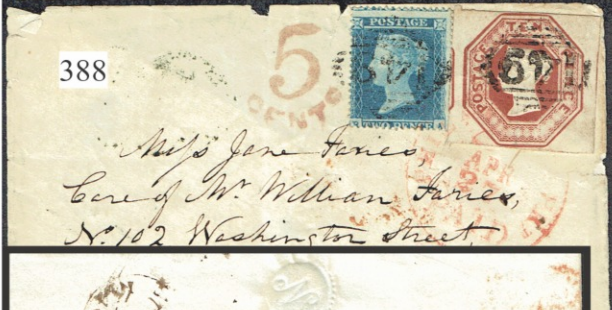 388
5
CENTS
POSTAGE
TWO PENCE
POSTAGE TEN PENCE
Miss Jane Faries
Care of Mr William Faries,
No. 102 Washington Street,
APR
N